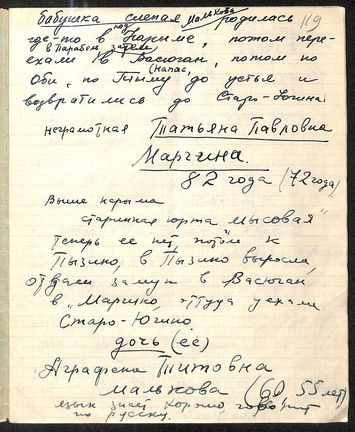 бабушка слепая Малькова родилась 119
где-то в под Нарыме, потом пере-
в Парабель затем
ехали в Васюган, потом по
(Напас,
Оби, по Тыму до устья и
возвратились до Старо-Югина
неграмотная Татьяна Павловна
Маргина.
82 года (72 года)
Выше нарыма
старинная юрта мысовая"
Теперь ее нет, потом к
Пызино, в Пызино выросла,
отдали замуж в Васюган
в „Маргино. Туда уехали
Старо-Югино.
дочь (её)
Аграфена Титовна
малькова (60 55 лет)
язык знает хорошо говорит
по русску.